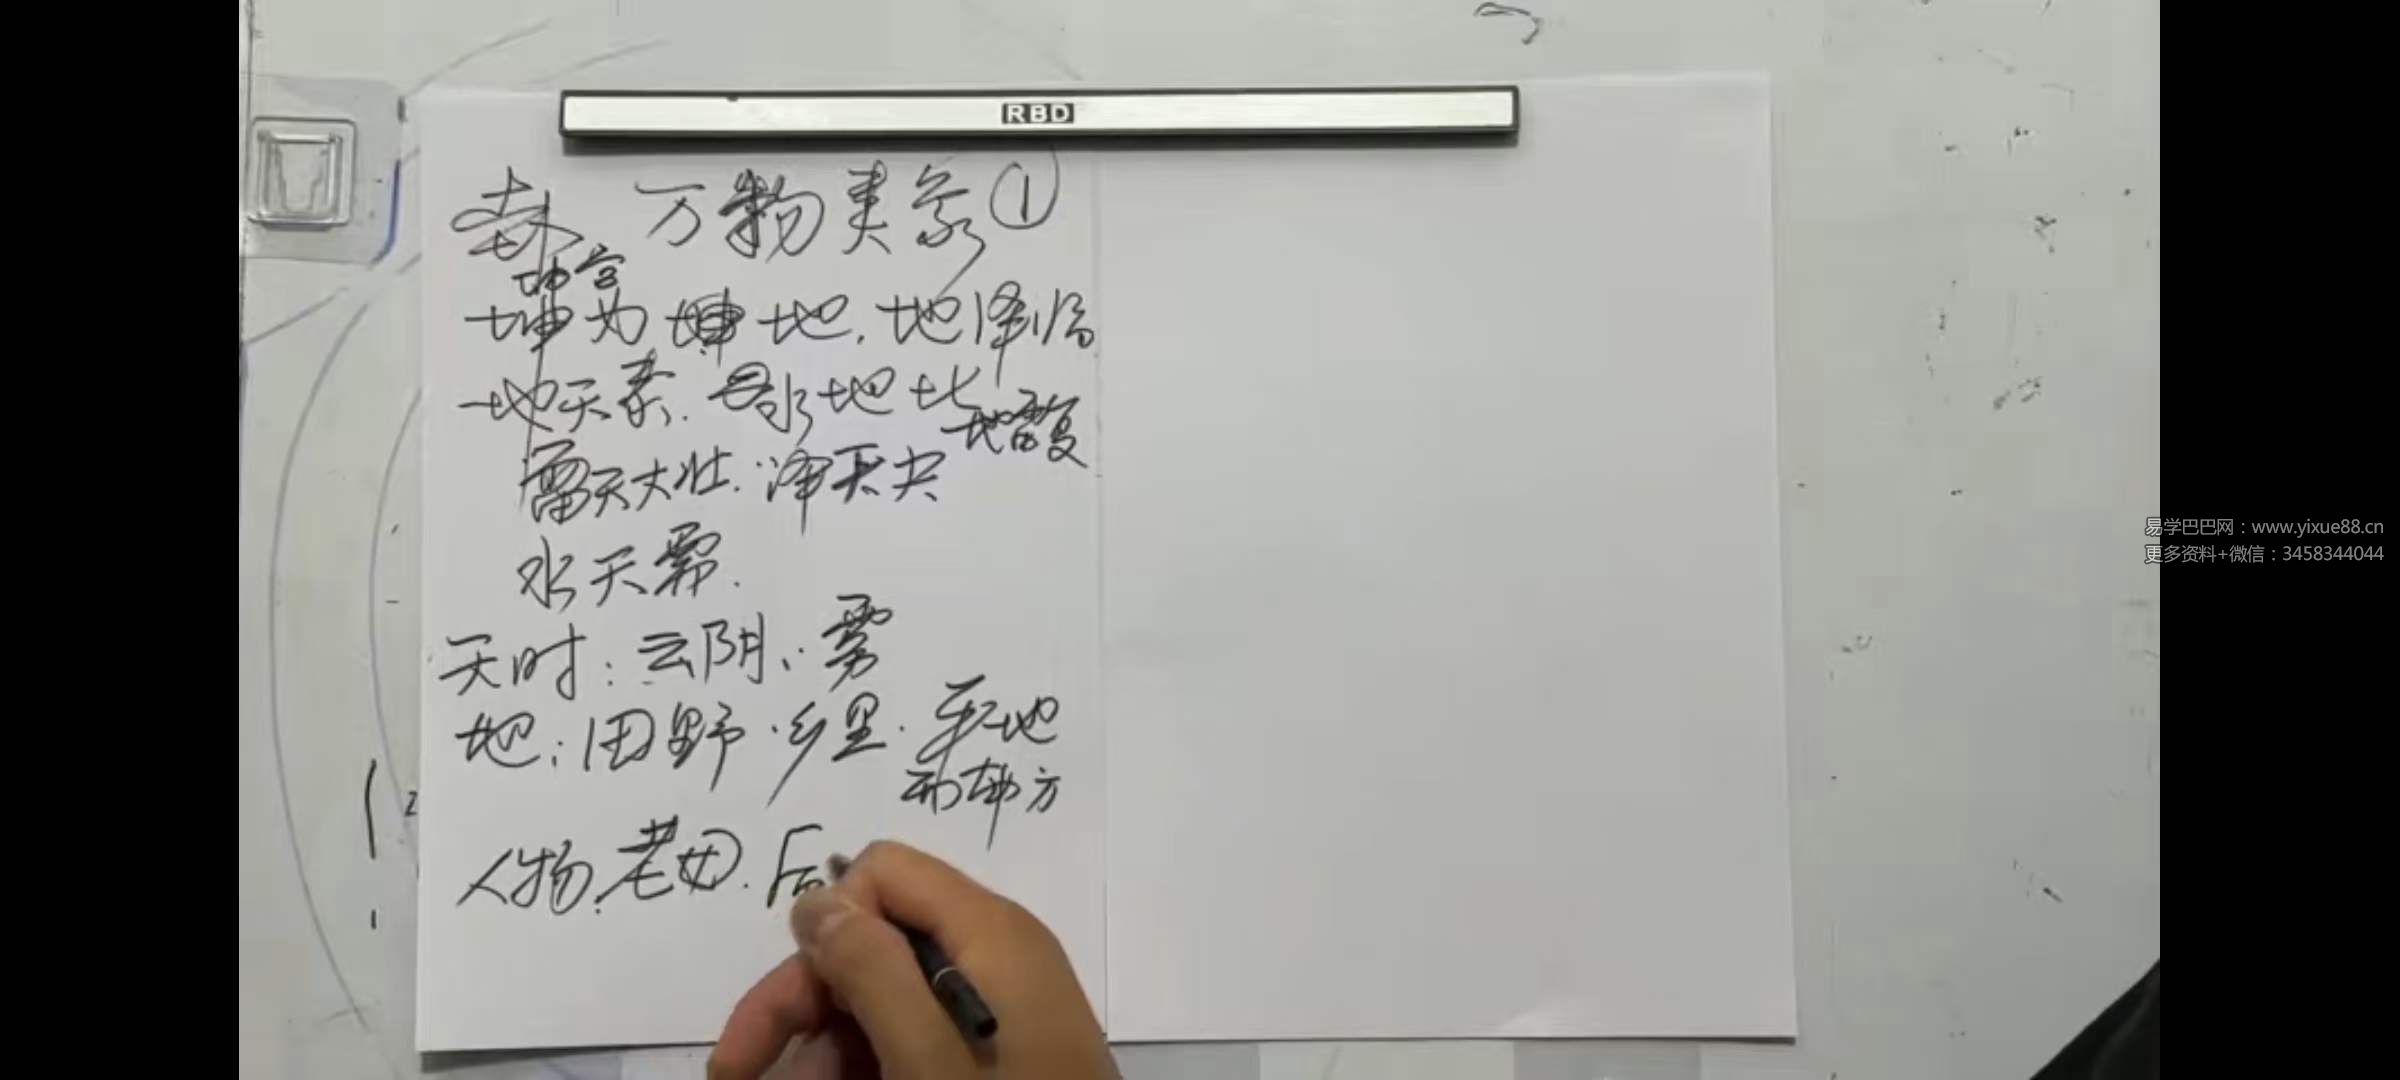 RBD
万物类象①
坤宫
坤为地.地泽临
地天泰.水地比
地雷复
雷天大壮.泽天夬
水天需.
天时:云阴、雾
地:田野.乡里.平地
西南方
人物:老母.后
易学巴巴网:www.yixue88.cn
更多资料+微信:3458344044